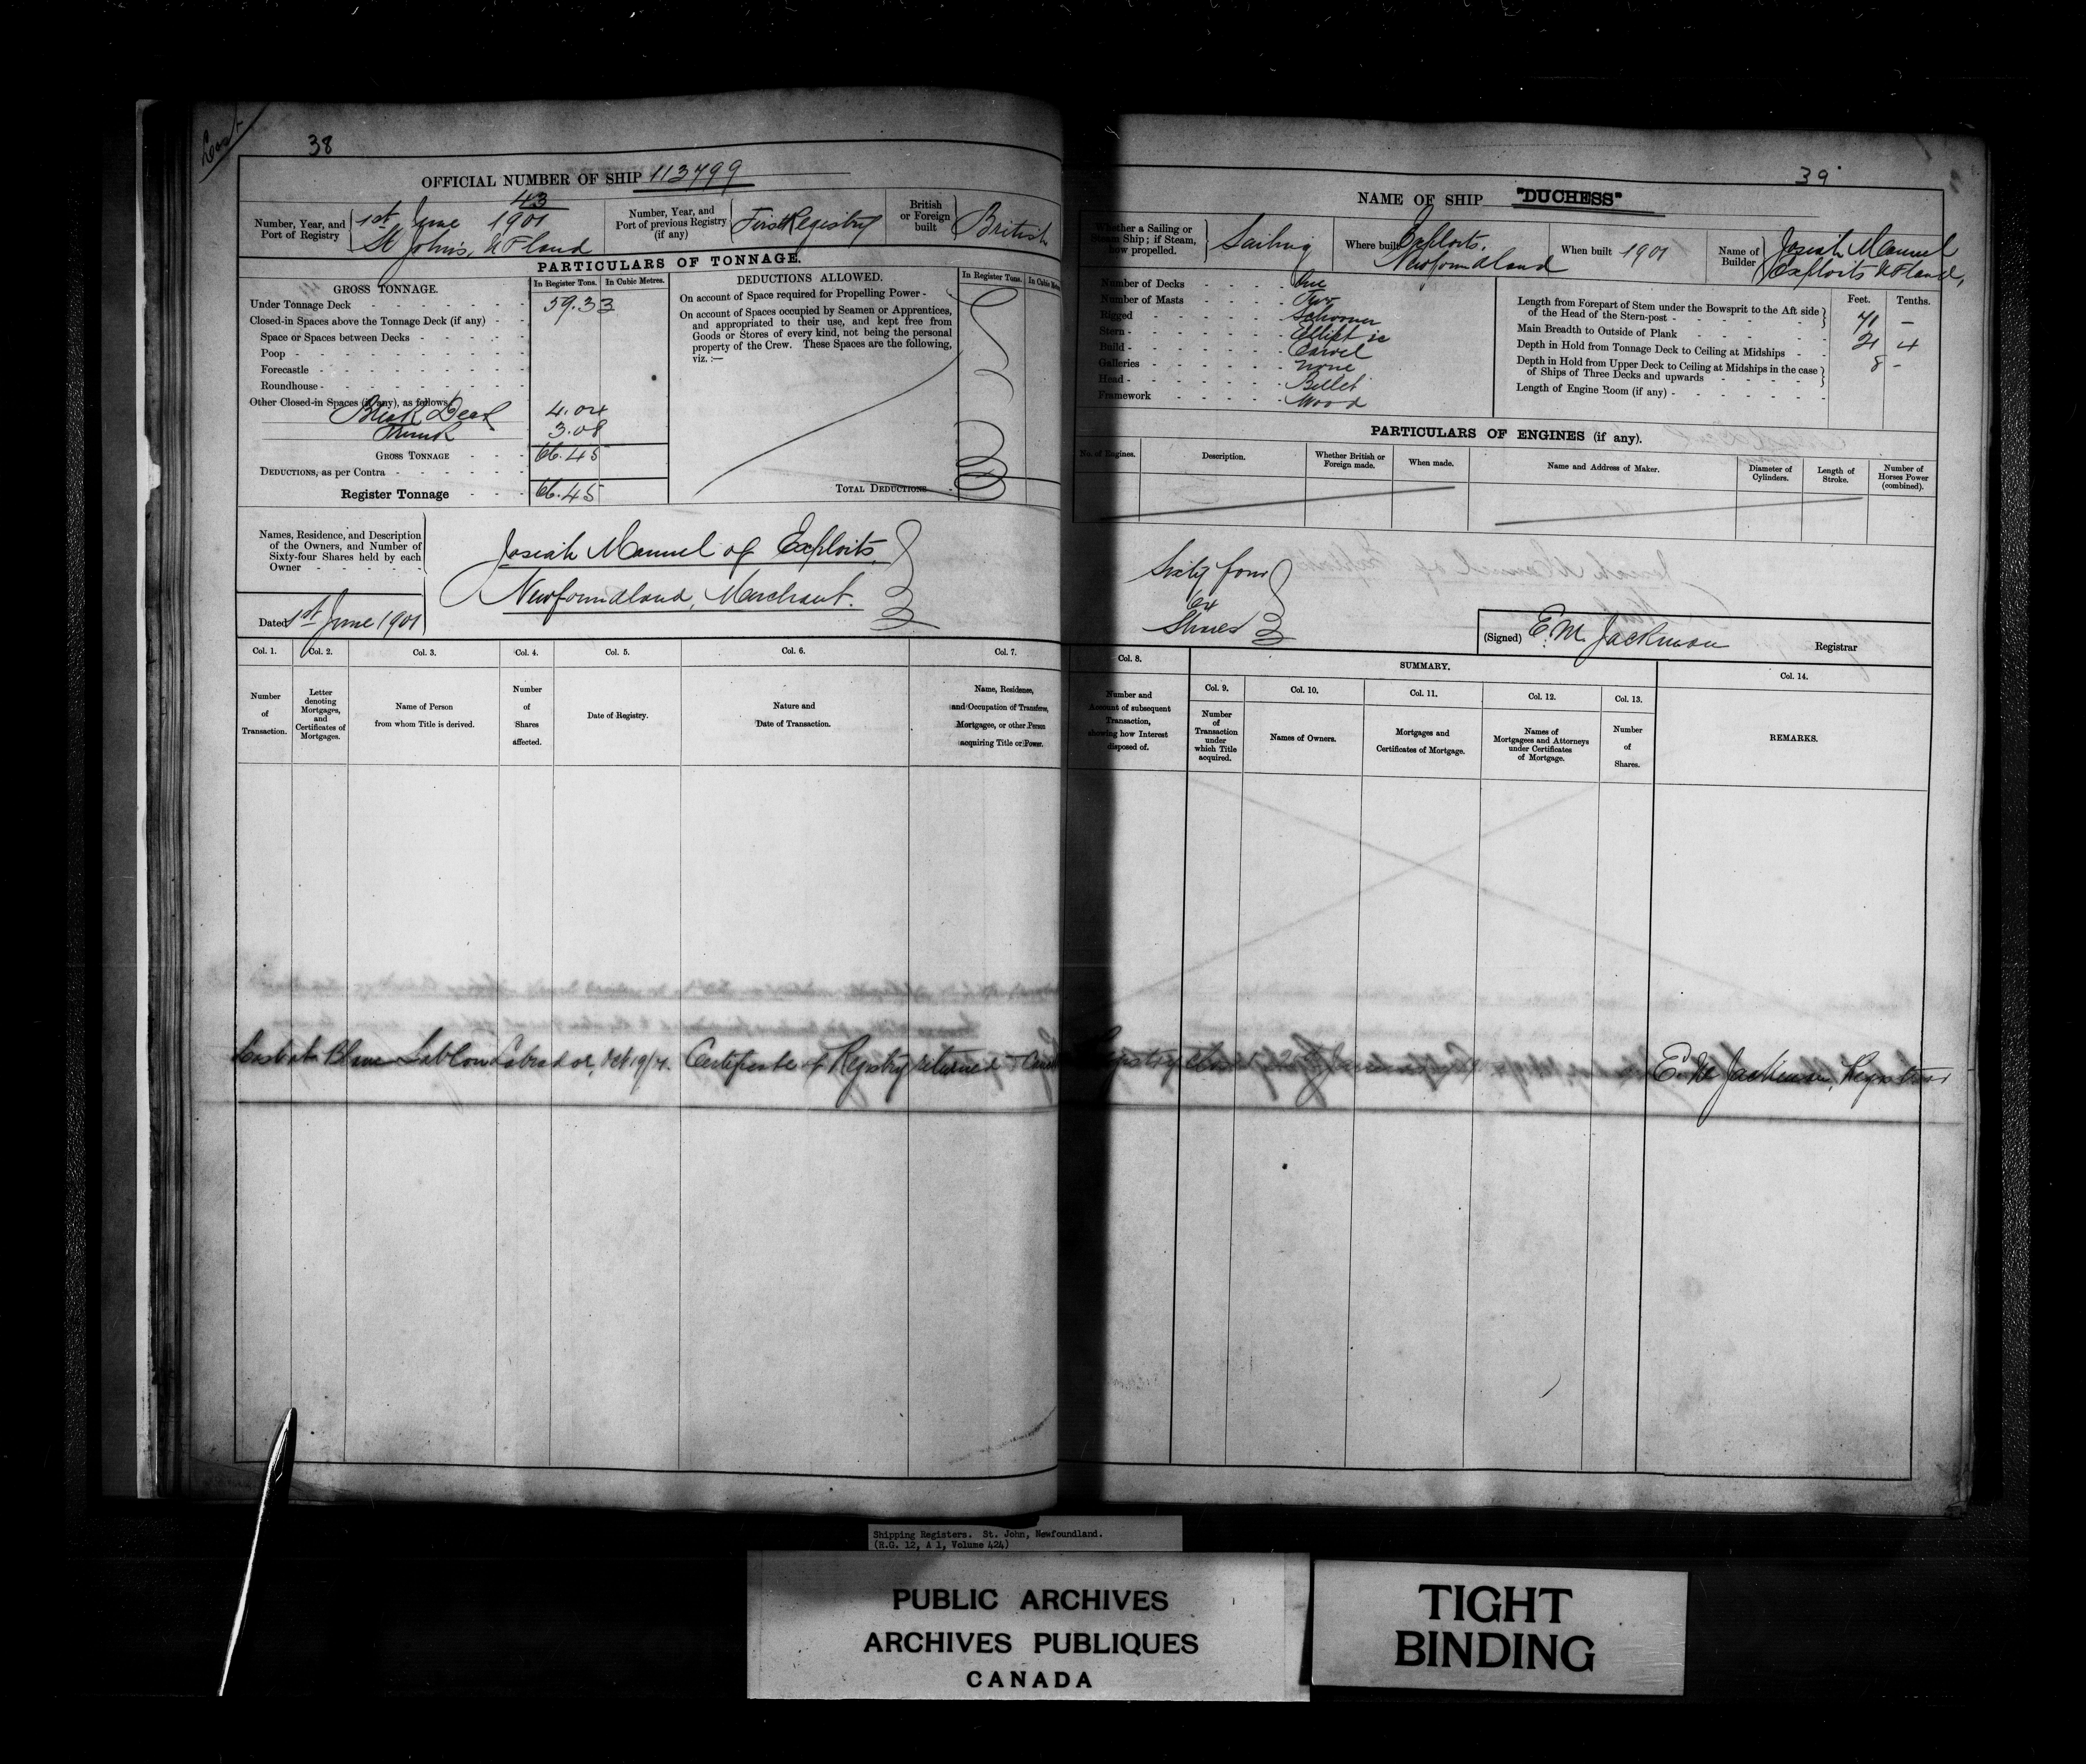 Lost
38
OFFICIAL NUMBER OF SHIP 113799
Number, Year, and Port of Registry
43
1st June 1901
St John's, NFland
Number, Year, and Port of previous Registry (if any)
First Registry
British or Foreign built
British
PARTICULARS OF TONNAGE.
GROSS TONNAGE.
In Register Tons. In Cubic Metres.
Under Tonnage Deck 59.33
Closed-in Spaces above the Tonnage Deck (if any)
Space or Spaces between Decks
Poop
Forecastle
Roundhouse
Other Closed-in Spaces (if any), as follows
Break Deck 4.04
Trunk 3.08
GROSS TONNAGE 66.45
DEDUCTIONS, as per Contra
Register Tonnage 66.45
DEDUCTIONS ALLOWED.
In Register Tons. In Cubic
On account of Space required for Propelling Power
On account of Spaces occupied by Seamen or Apprentices,
and appropriated to their use, and kept free from
Goods or Stores of every kind, not being the personal
property of the Crew. These Spaces are the following,
viz. :—
TOTAL DEDUCTIONS
Names, Residence, and Description
of the Owners, and Number of
Sixty-four Shares held by each
Owner
Dated 1st June 1901
Josiah Manuel of Exploits,
Newfoundland, Merchant.
Col. 1. Col. 2. Col. 3. Col. 4. Col. 5. Col. 6. Col. 7.
Number of Transaction.
Letter denoting Mortgages, and Certificates of Mortgages.
Name of Person from whom Title is derived.
Number of Shares affected.
Date of Registry.
Nature and Date of Transaction.
Name, Residence, and Occupation of Transferee, Mortgagee, or other Person acquiring Title or Power.
Lost at Blanc Sablon Labrador, Oct 19/1. Certificate of Registry returned
39
NAME OF SHIP "DUCHESS"
Whether a Sailing or Steam Ship; if Steam, how propelled.
Sailing
Where built
Exploits.
Newfoundland
When built 1901
Name of Builder
Josiah Manuel
Exploits NFland,
Number of Decks One
Number of Masts Two
Rigged Schooner
Stern Elliptic
Build Carvel
Galleries none
Head Billet
Framework Wood
Feet. Tenths.
Length from Forepart of Stem under the Bowsprit to the Aft side
of the Head of the Stern-post 71 –
Main Breadth to Outside of Plank 21 4
Depth in Hold from Tonnage Deck to Ceiling at Midships 8 –
Depth in Hold from Upper Deck to Ceiling at Midships in the case
of Ships of Three Decks and upwards
Length of Engine Room (if any)
PARTICULARS OF ENGINES (if any).
No. of Engines.
Description.
Whether British or Foreign made.
When made.
Name and Address of Maker.
Diameter of Cylinders.
Length of Stroke.
Number of Horses Power (combined).
Sixty four
64
Shares
(Signed) E. M. Jackman Registrar
Col. 8.
SUMMARY.
Col. 14.
Col. 9. Col. 10. Col. 11. Col. 12. Col. 13.
Number and Account of subsequent Transaction, showing how Interest disposed of.
Number of Transaction under which Title acquired.
Names of Owners.
Mortgages and Certificates of Mortgage.
Names of Mortgagees and Attorneys under Certificates of Mortgage.
Number of Shares.
REMARKS.
Registry closed
E. M. Jackman, Registrar
Shipping Registers. St. John, Newfoundland.
(R.G. 12, A 1, Volume 424)
PUBLIC ARCHIVES
ARCHIVES PUBLIQUES
CANADA
TIGHT
BINDING